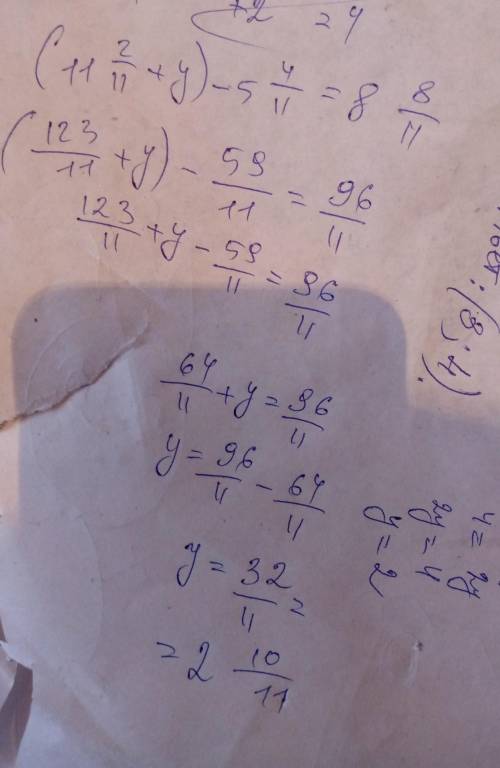 +2 = 4
(11 2/11 + y) - 5 4/11 = 8 8/11
(123/11 + y) - 59/11 = 96/11
123/11 + y - 59/11 = 96/11
64/11 + y = 96/11
y = 96/11 - 64/11
y = 32/11 =
= 2 10/11
2y = 4
y = 2